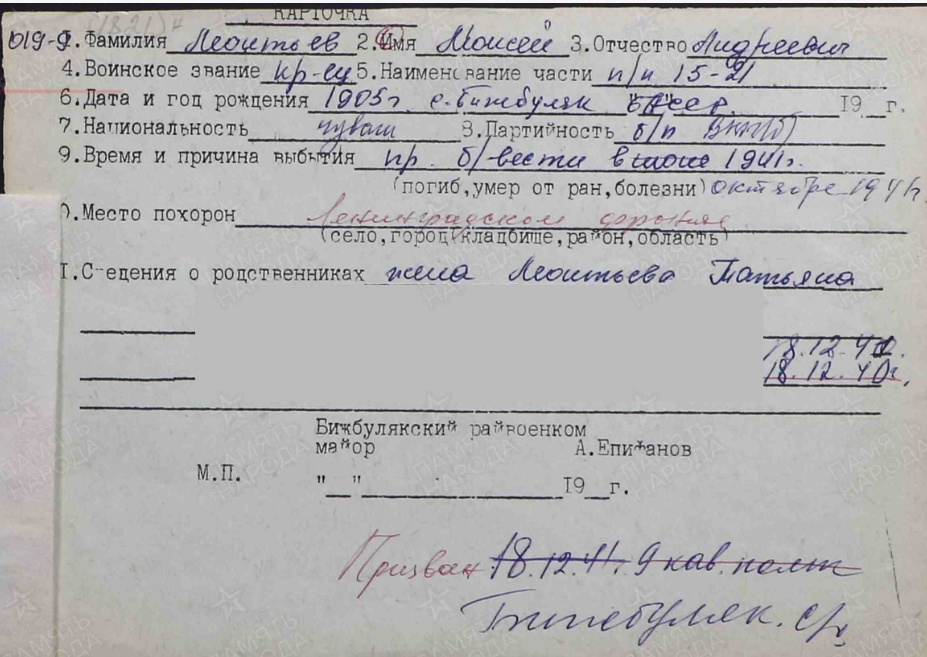 КАРТОЧКА
1.Фамилия Леонтьев 2.Имя Моисей 3.Отчество Андреевич
4.Воинское звание кр-ец 5.Наименование части п/п 15-21
6.Дата и год рождения 1905г. с.Бижбуляк БАССР. 19 г.
7.Национальность чуваш 8.Партийность б/п ВКП(б)
9.Время и причина выбытия пр. б/вести в июле 1941г.
(погиб,умер от ран,болезни) октябре 1941г.
0.Место похорон Ленинградском фронте
(село,город,кладбище,район,область)
I.Сведения о родственниках жена Леонтьева Татьяна
18.12.41.
18.12.40г.
Бижбулякский райвоенком
майор А.Епифанов
М.П. "__"____________19__г.
Призван 18.12.41. 9 кав. полк
Бижбуляк. с/с